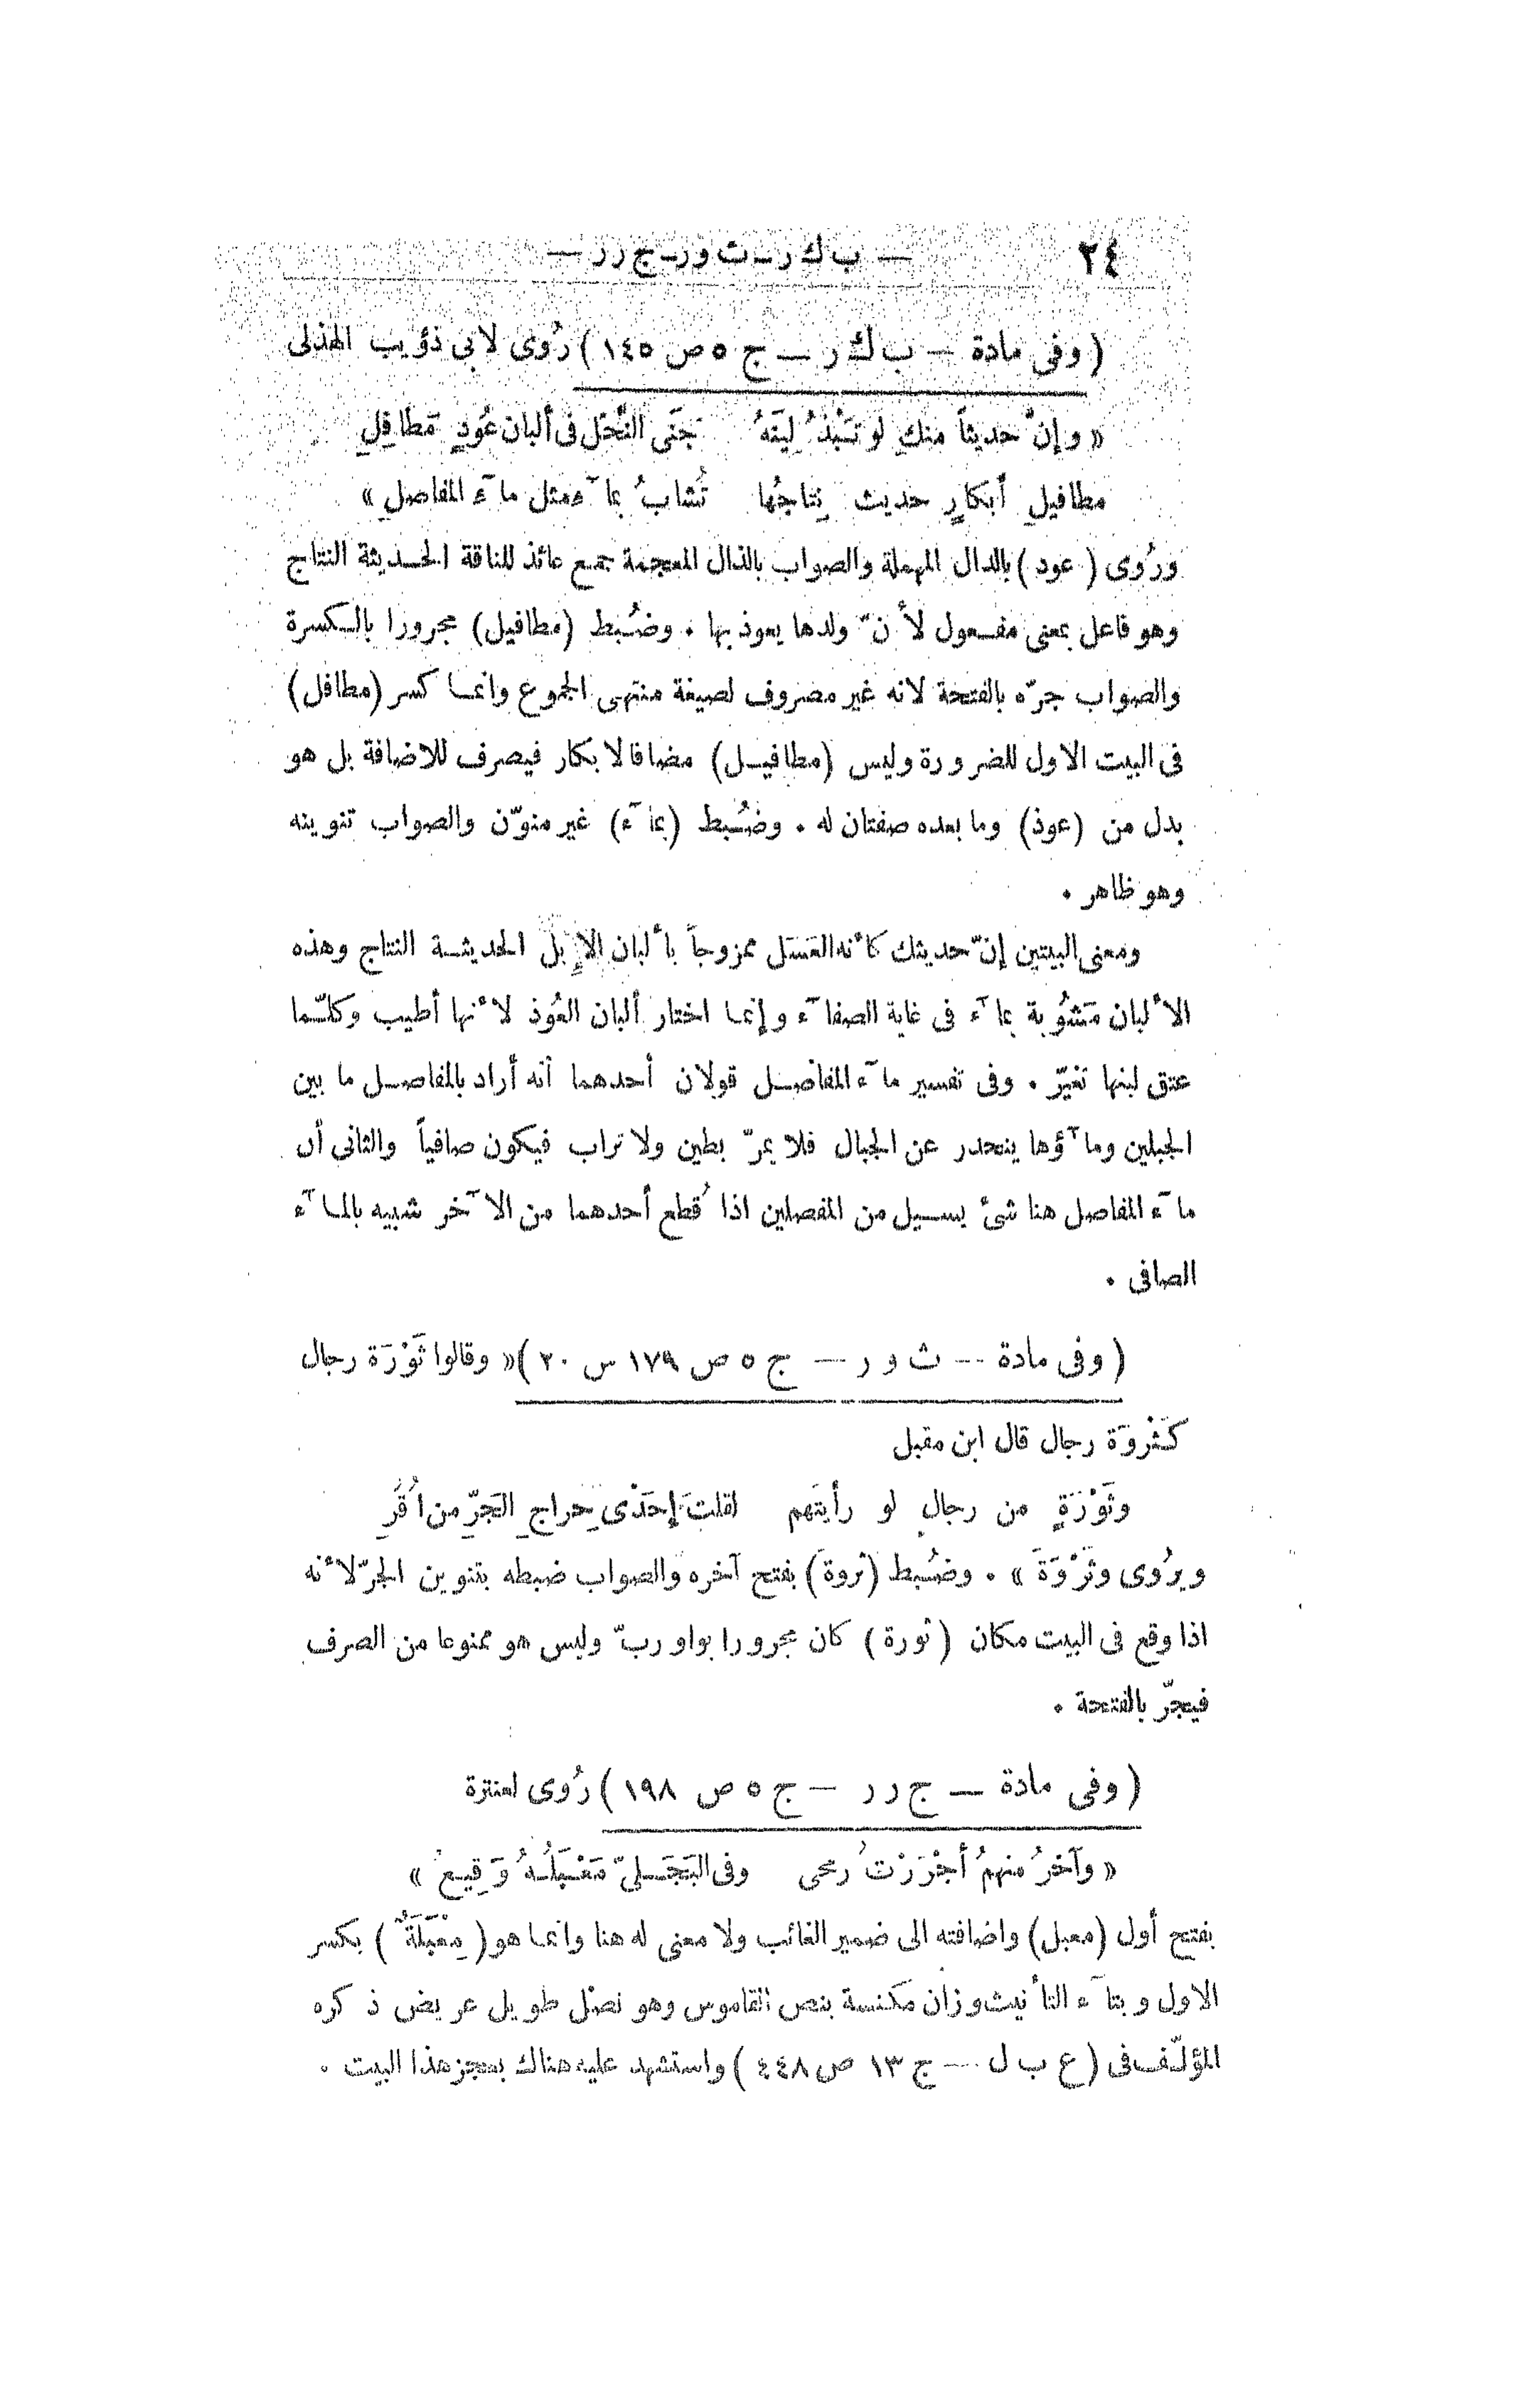 ٢٤ — ب ك ر - ث و ر - ج ر ر —
( وفى مادة — ب ك ر — ج ٥ ص ١٤٥ ) رُوى لابى ذؤيب الهذلى
« وإنّ حديثاً منكِ لو تَبْذُلِينَهُ جَنَى النَّحْلِ فى ألبان عُودٍ مَطافِلِ
مطافيلِ أبكارٍ حديث نِتاجُها تُشابُ بمآء مثل مآء المفاصلِ »
ورُوى ( عود ) بالدال المهملة والصواب بالذال المعجمة جمع عائذ للناقة الحديثة النتاج
وهو فاعل بمعنى مفعول لأنّ ولدها يعوذ بها . وضُبط (مطافيل) مجرورا بالكسرة
والصواب جرّه بالفتحة لانه غير مصروف لصيغة منتهى الجموع وانما كسر (مطافل)
فى البيت الاول للضرورة وليس (مطافيل) مضافا لابكار فيصرف للاضافة بل هو
بدل من (عوذ) وما بعده صفتان له . وضُبط (بمآء) غير منوّن والصواب تنوينه
وهو ظاهر .
ومعنى البيتين إنّ حديثك كأنه العَسَل ممزوجاً بألبان الإِبل الحديثة النتاج وهذه
الألبان مَشُوبة بمآء فى غاية الصفآء وإنما اختار ألبان العُوذ لأنها أطيب وكلّما
عتق لبنها تغيّر . وفى تفسير مآء المفاصل قولان أحدهما أنه أراد بالمفاصل ما بين
الجبلين ومآؤها ينحدر عن الجبال فلا يمرّ بطين ولا تراب فيكون صافياً والثانى أن
مآء المفاصل هنا شئ يسيل من المفصلين اذا قُطع أحدهما من الآخر شبيه بالمآء
الصافى .
( وفى مادة — ث و ر — ج ٥ ص ١٧٩ س ٢٠ ) « وقالوا ثَوْرَة رجال
كَثْروَة رجال قال ابن مقبل
وثَوْرَةٍ من رجالٍ لو رأيتَهم لقلتَ إحَدْى حِراجِ الجَرِّ من اُقُرِ
ويرُوى وثَرْوَةَ » . وضُبط (ثروة) بفتح آخره والصواب ضبطه بتنوين الجرّ لأنه
اذا وقع فى البيت مكان ( ثورة ) كان مجرورا بواو ربّ وليس هو ممنوعا من الصرف
فيجرّ بالفتحة .
( وفى مادة — ج ر ر — ج ٥ ص ١٩٨ ) رُوى لعنترة
« وآخرُ منهمُ أجْرَرْتُ رمحى وفى البَجَلىّ مَعْبَلُهُ وَقِيعُ »
بفتح أول (معبل) واضافته الى ضمير الغائب ولا معنى له هنا وانما هو ( مِعْبَلَةٌ ) بكسر
الاول وبتآء التأنيث وزان مكنسة بنص القاموس وهو نصْل طويل عريض ذكره
المؤلّف فى ( ع ب ل — ج ١٣ ص ٤٤٨ ) واستشهد عليه هناك بعجز هذا البيت .